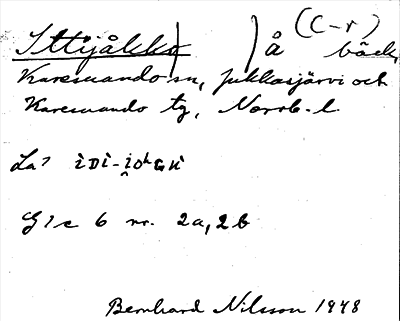 (C-r)
Ittijåkko ) ) å bäck
Karesuando sn, Jukkasjärvi och
Karesuando tg, Norrb. l.
La?
G1c 6 nr. 2a, 2b
Bernhard Nilsson 1948